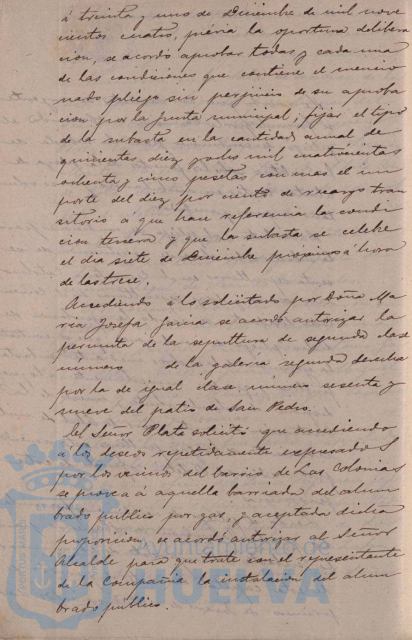 á treinta y uno de Diciembre de mil nove
cientos cuatro, prévia la oportuna delibera
cion, se acordó aprobar todas y cada una
de las condiciones que contiene el mencio
nado pliego sin perjuicio de su aproba
cion por la Junta municipal; fijar el tipo
de la subasta en la cantidad anual de
quinientas diez y ocho mil cuatrocientas
ochenta y cinco pesetas con mas el im
porte del diez por ciento de recargo tran
sitorio á que hace referencia la condi
cion tercera y que la subasta se celebre
el dia siete de Diciembre próximo á hora
de las trece.
Accediendo á lo solicitado por Doña Ma
ria Josefa Garcia se acordó autorizar la
permuta de la sepultura de segunda clase
número de la galeria segunda derecha
por la de igual clase número sesenta y
nueve del patio de San Pedro.
Del Señor Plata solicitó que accediendo
á los deseos repetidamente expresados
por los vecinos del barrio de Las Colonias
se provea á aquella barriada del alum
brado público por gas, y aceptada dicha
proposicion se acordó autorizar al Señor
Alcalde para que trate con el representante
de la Compañia la instalacion del alum
brado público.
Ayuntamiento de
HUELVA